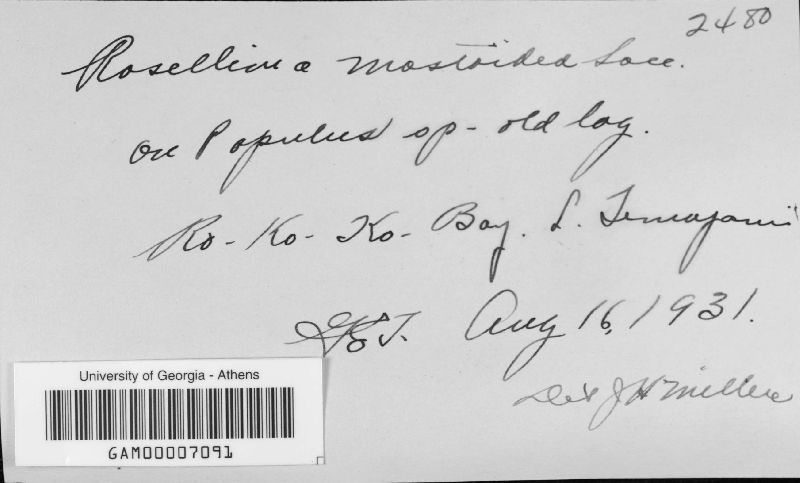 2480
Rosellinia mastoidea Sacc.
on Populus sp - old log.
Ko - Ko - Ko - Bay. L. Temagami
Aug 16, 1931.
Det J H Miller
University of Georgia - Athens
GAM00007091